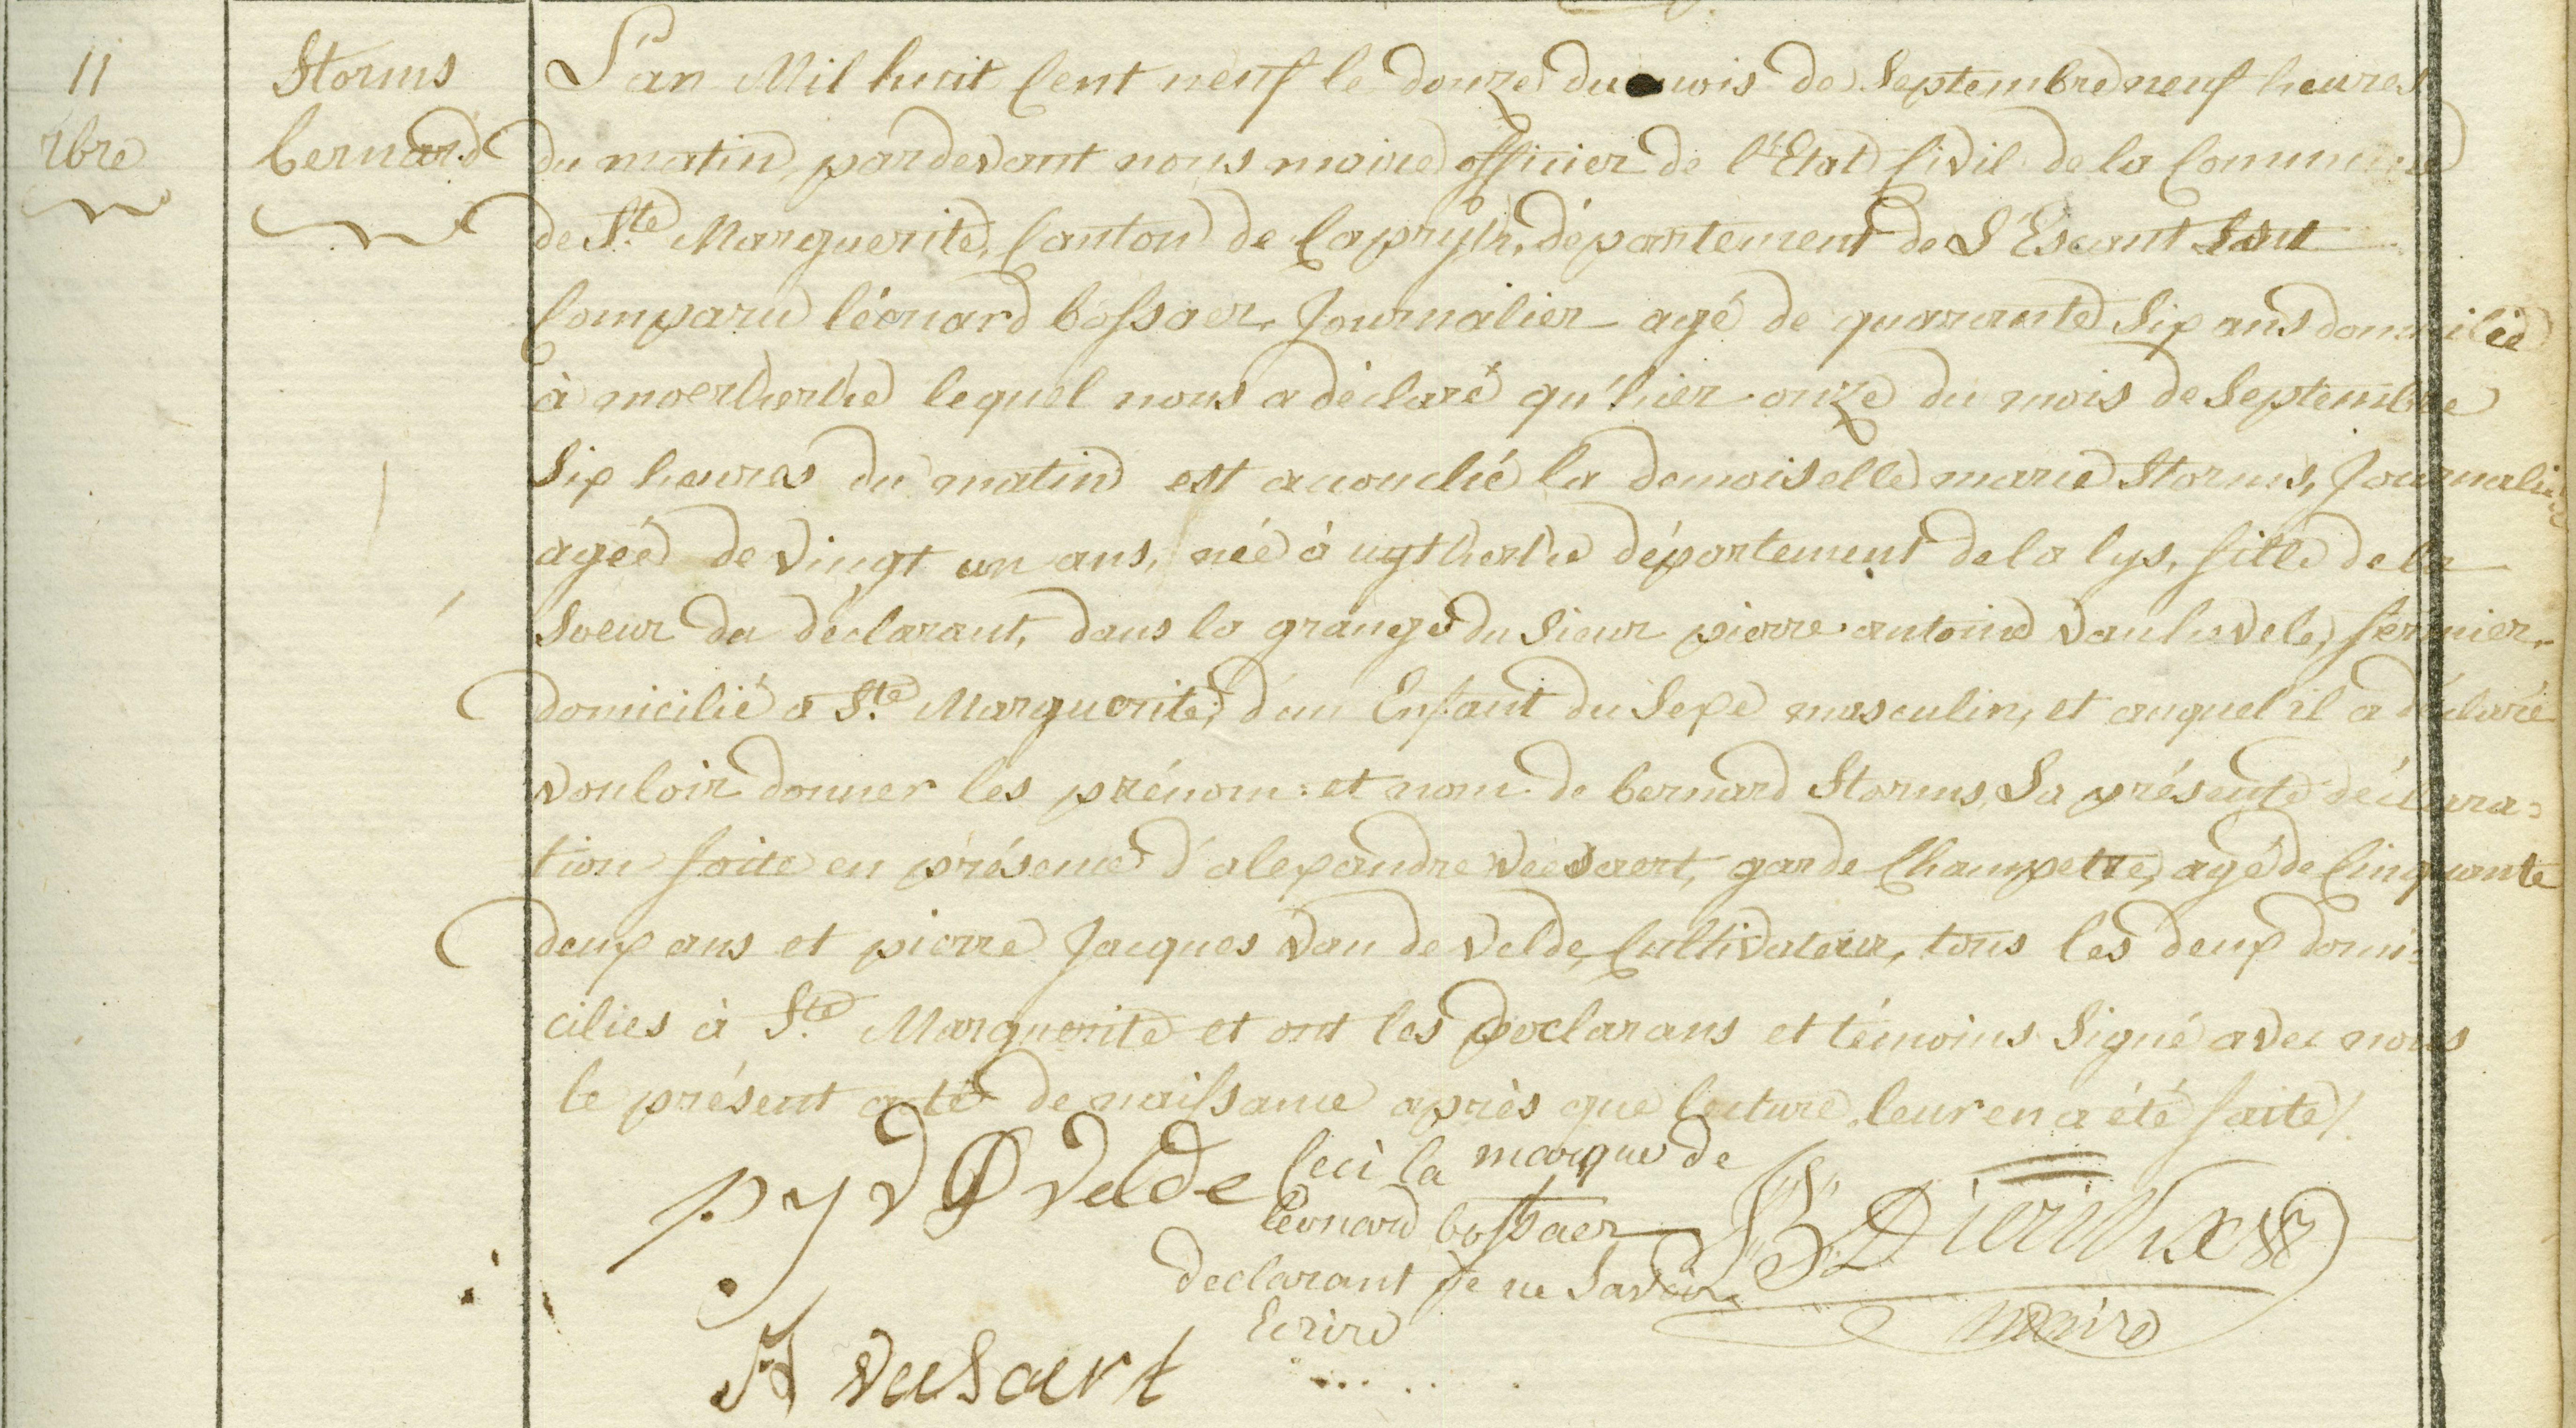 11
7bre
Storms
bernard
L'an Mil huit Cent neuf le douze du mois de Septembre neuf heures
du matin, pardevant nous maire officier de l'Etat Civil de la Commune
de Ste Marguerite, Canton de Capryk, département de L'Escaut
Comparu léonard bossaer, Journalier agé de quarante Six ans domicilié
à moerkerke lequel nous a déclaré qu'hier onze du mois de Septembre
Six heures du matin est accouché la demoiselle marie Storms, Journalière
agéé de vingt un ans, née à uytkerke département de la lys, fille de la
Soeur du déclarant, dans la grange du Sieur pierre antoine fermier
domicilié a Ste Marguerite, d'un Enfant du Sexe masculin, et auquel il a déclaré
vouloir donner les prénom et nom de bernard Storms, La présente déclara=
tion faite en présence d'alexandre veesaert, garde Champetre, agé de Cinquante
deux ans et pierre Jacques van de velde, Cultivateur, tous les deux domi=
ciliés à Ste Marguerite et ont les declarans et témoins Signé avec nous
le présent acte de naissance après que lecture leur en a été faite/.
p y v D velde
Ceci la marque de
Léonard bossaer
declarant de ne Savoir
Ecrire
Dierickx
maire
A veesaert